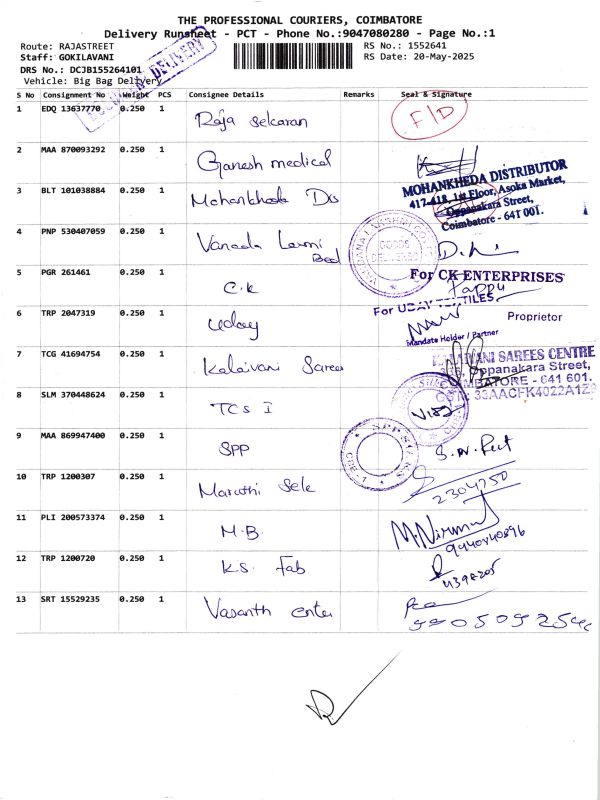 THE PROFESSIONAL COURIERS, COIMBATORE
Delivery Runsheet - PCT - Phone No.:9047080280 - Page No.:1
Route: RAJASTREET
RS No.: 1552641
Staff: GOKILAVANI
RS Date: 20-May-2025
DRS No.: DCJB155264101
Vehicle: Big Bag Delivery
DELIVERY
S No Consignment No Weight PCS Consignee Details Remarks Seal & Signature
1 EDQ 13637770 0.250 1 Raja Sekaran F/D
2 MAA 870093292 0.250 1 Ganesh medical
3 BLT 101038884 0.250 1 Mohankheda Dis
MOHANKHEDA DISTRIBUTOR
417-418, 1st Floor, Asoka Market,
Oppanakara Street,
Coimbatore - 641 001.
4 PNP 530407059 0.250 1 Vanada Laxmi
GOODS
DELIVERED
5 PGR 261461 0.250 1 C.K
For CK ENTERPRISES
Pappu
6 TRP 2047319 0.250 1 Uday
For UDAY TEXTILES
Proprietor
Mandate Holder / Partner
7 TCG 41694754 0.250 1 Kalaivani Sarees
KALAIVANI SAREES CENTRE
Oppanakara Street,
COIMBATORE - 641 601.
33AACFK4022A1Z
8 SLM 370448624 0.250 1 TCS I
9 MAA 869947400 0.250 1 SPP
SPP SILKS
CBE-1
10 TRP 1200307 0.250 1 Maruthi Sele
2304750
11 PLI 200573374 0.250 1 M.B.
M.Nirmal
9440440896
12 TRP 1200720 0.250 1 K.S. Fab
4398205
13 SRT 15529235 0.250 1 Vasanth enter